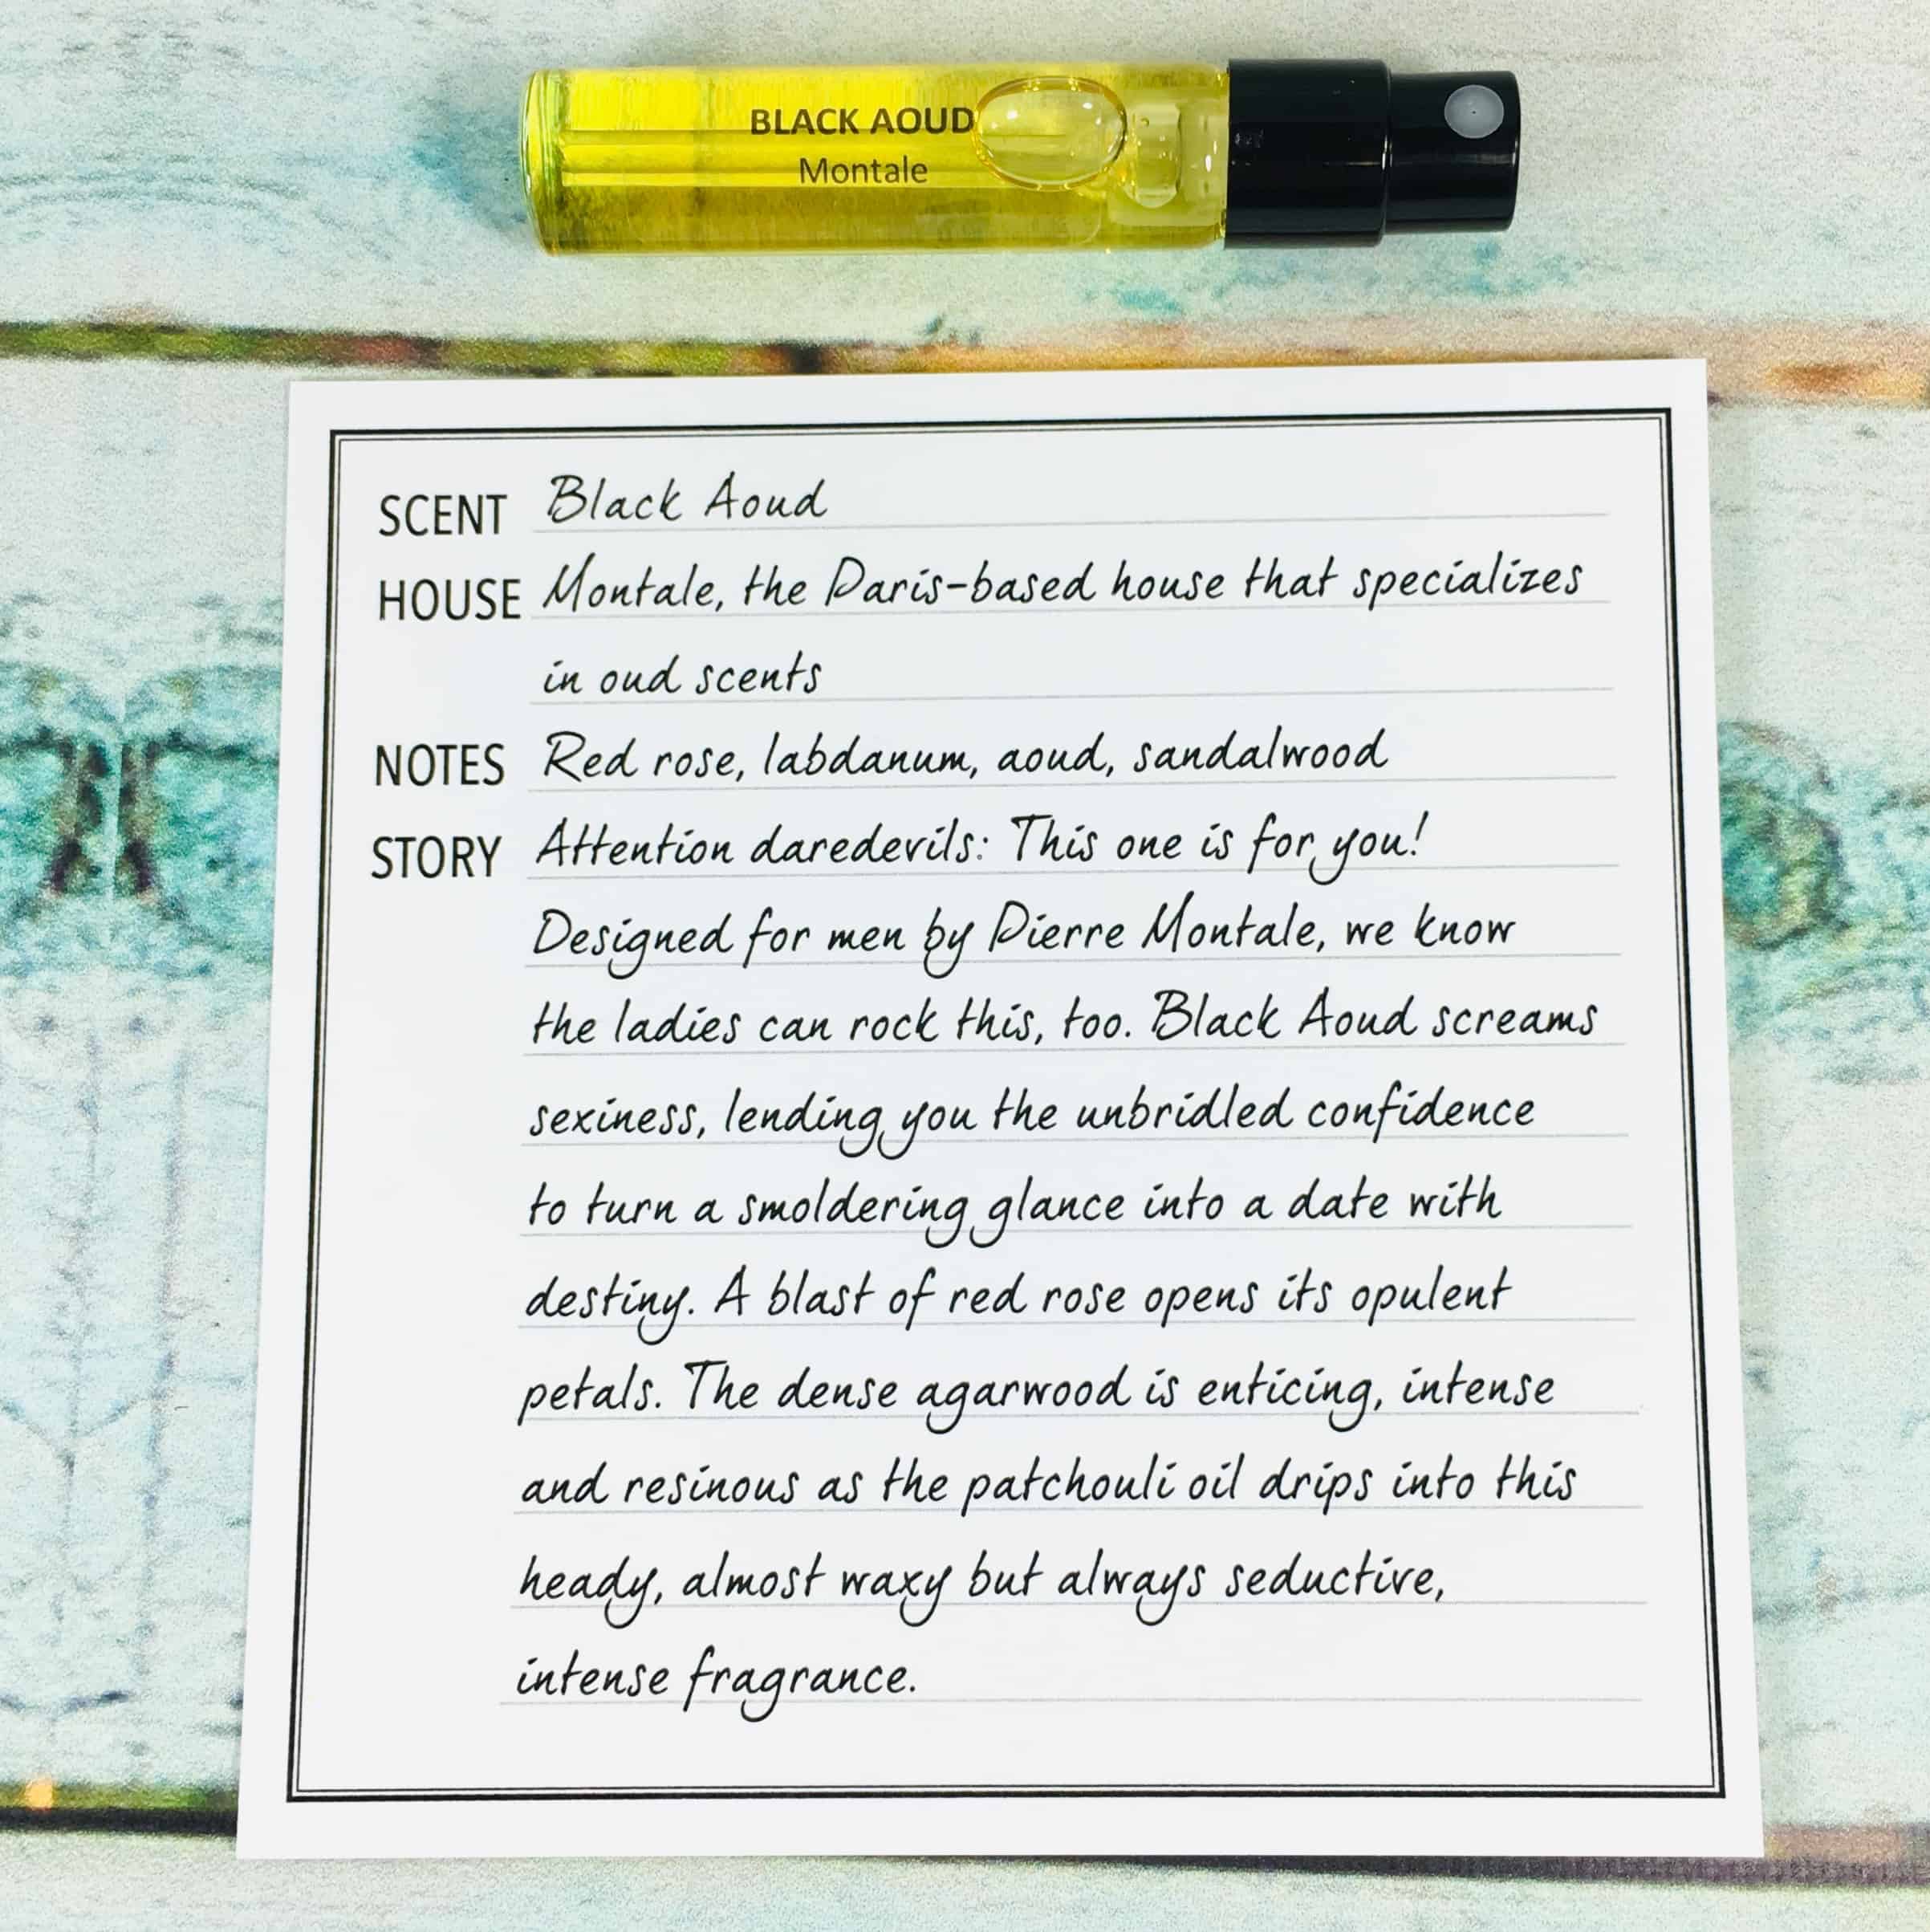 BLACK AOUD
Montale
SCENT Black Aoud
HOUSE Montale, the Paris-based house that specializes
in oud scents
NOTES Red rose, labdanum, aoud, sandalwood
STORY Attention daredevils: This one is for you!
Designed for men by Pierre Montale, we know
the ladies can rock this, too. Black Aoud screams
sexiness, lending you the unbridled confidence
to turn a smoldering glance into a date with
destiny. A blast of red rose opens its opulent
petals. The dense agarwood is enticing, intense
and resinous as the patchouli oil drips into this
heady, almost waxy but always seductive,
intense fragrance.